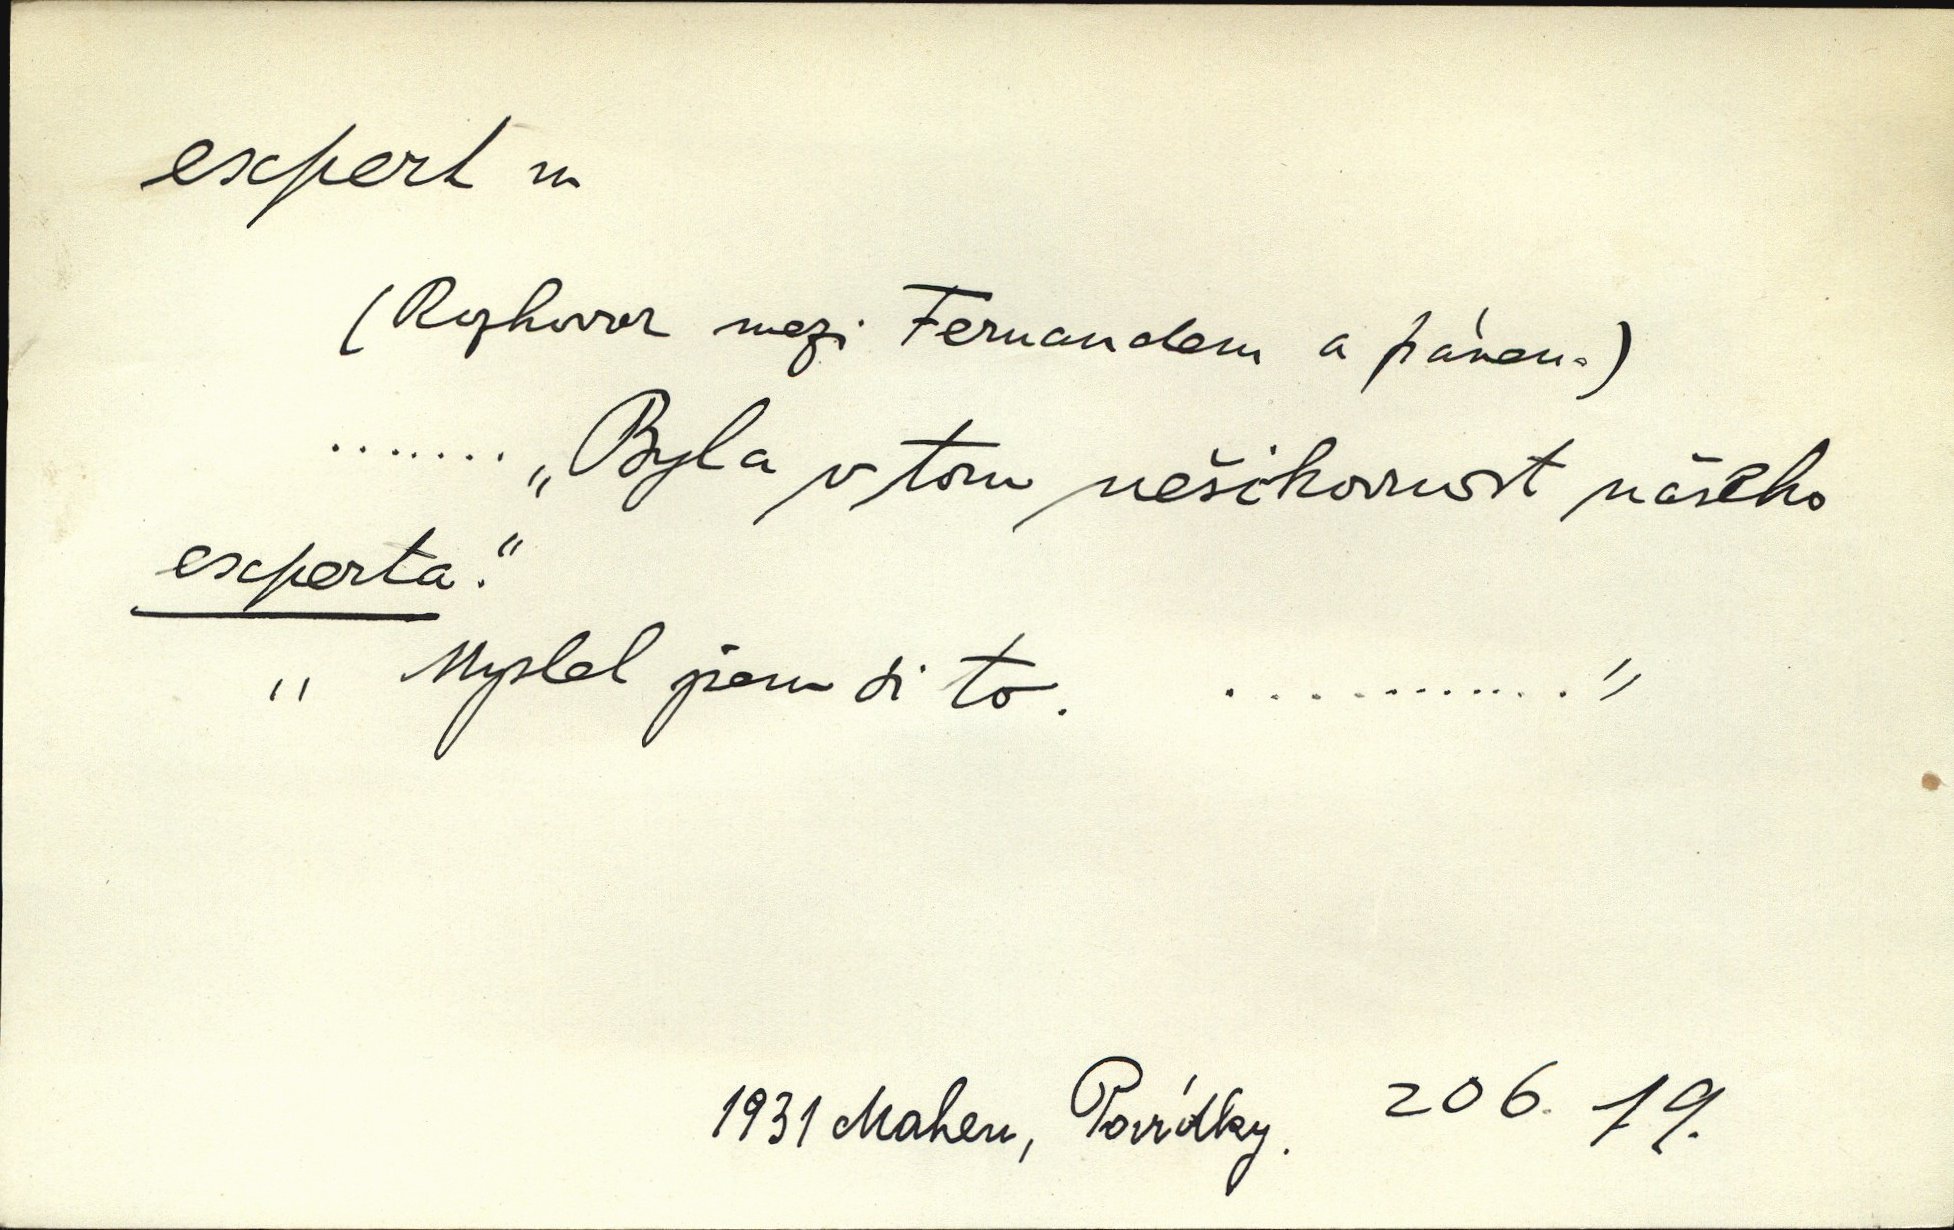 expert m
(Rozhovor mezi Fernandem a pánem.)
....... „Byla v tom nešikovnost našeho
experta."
„ Myslel jsem si to. ............"
1931 Mahen, Povídky. 206. 19.